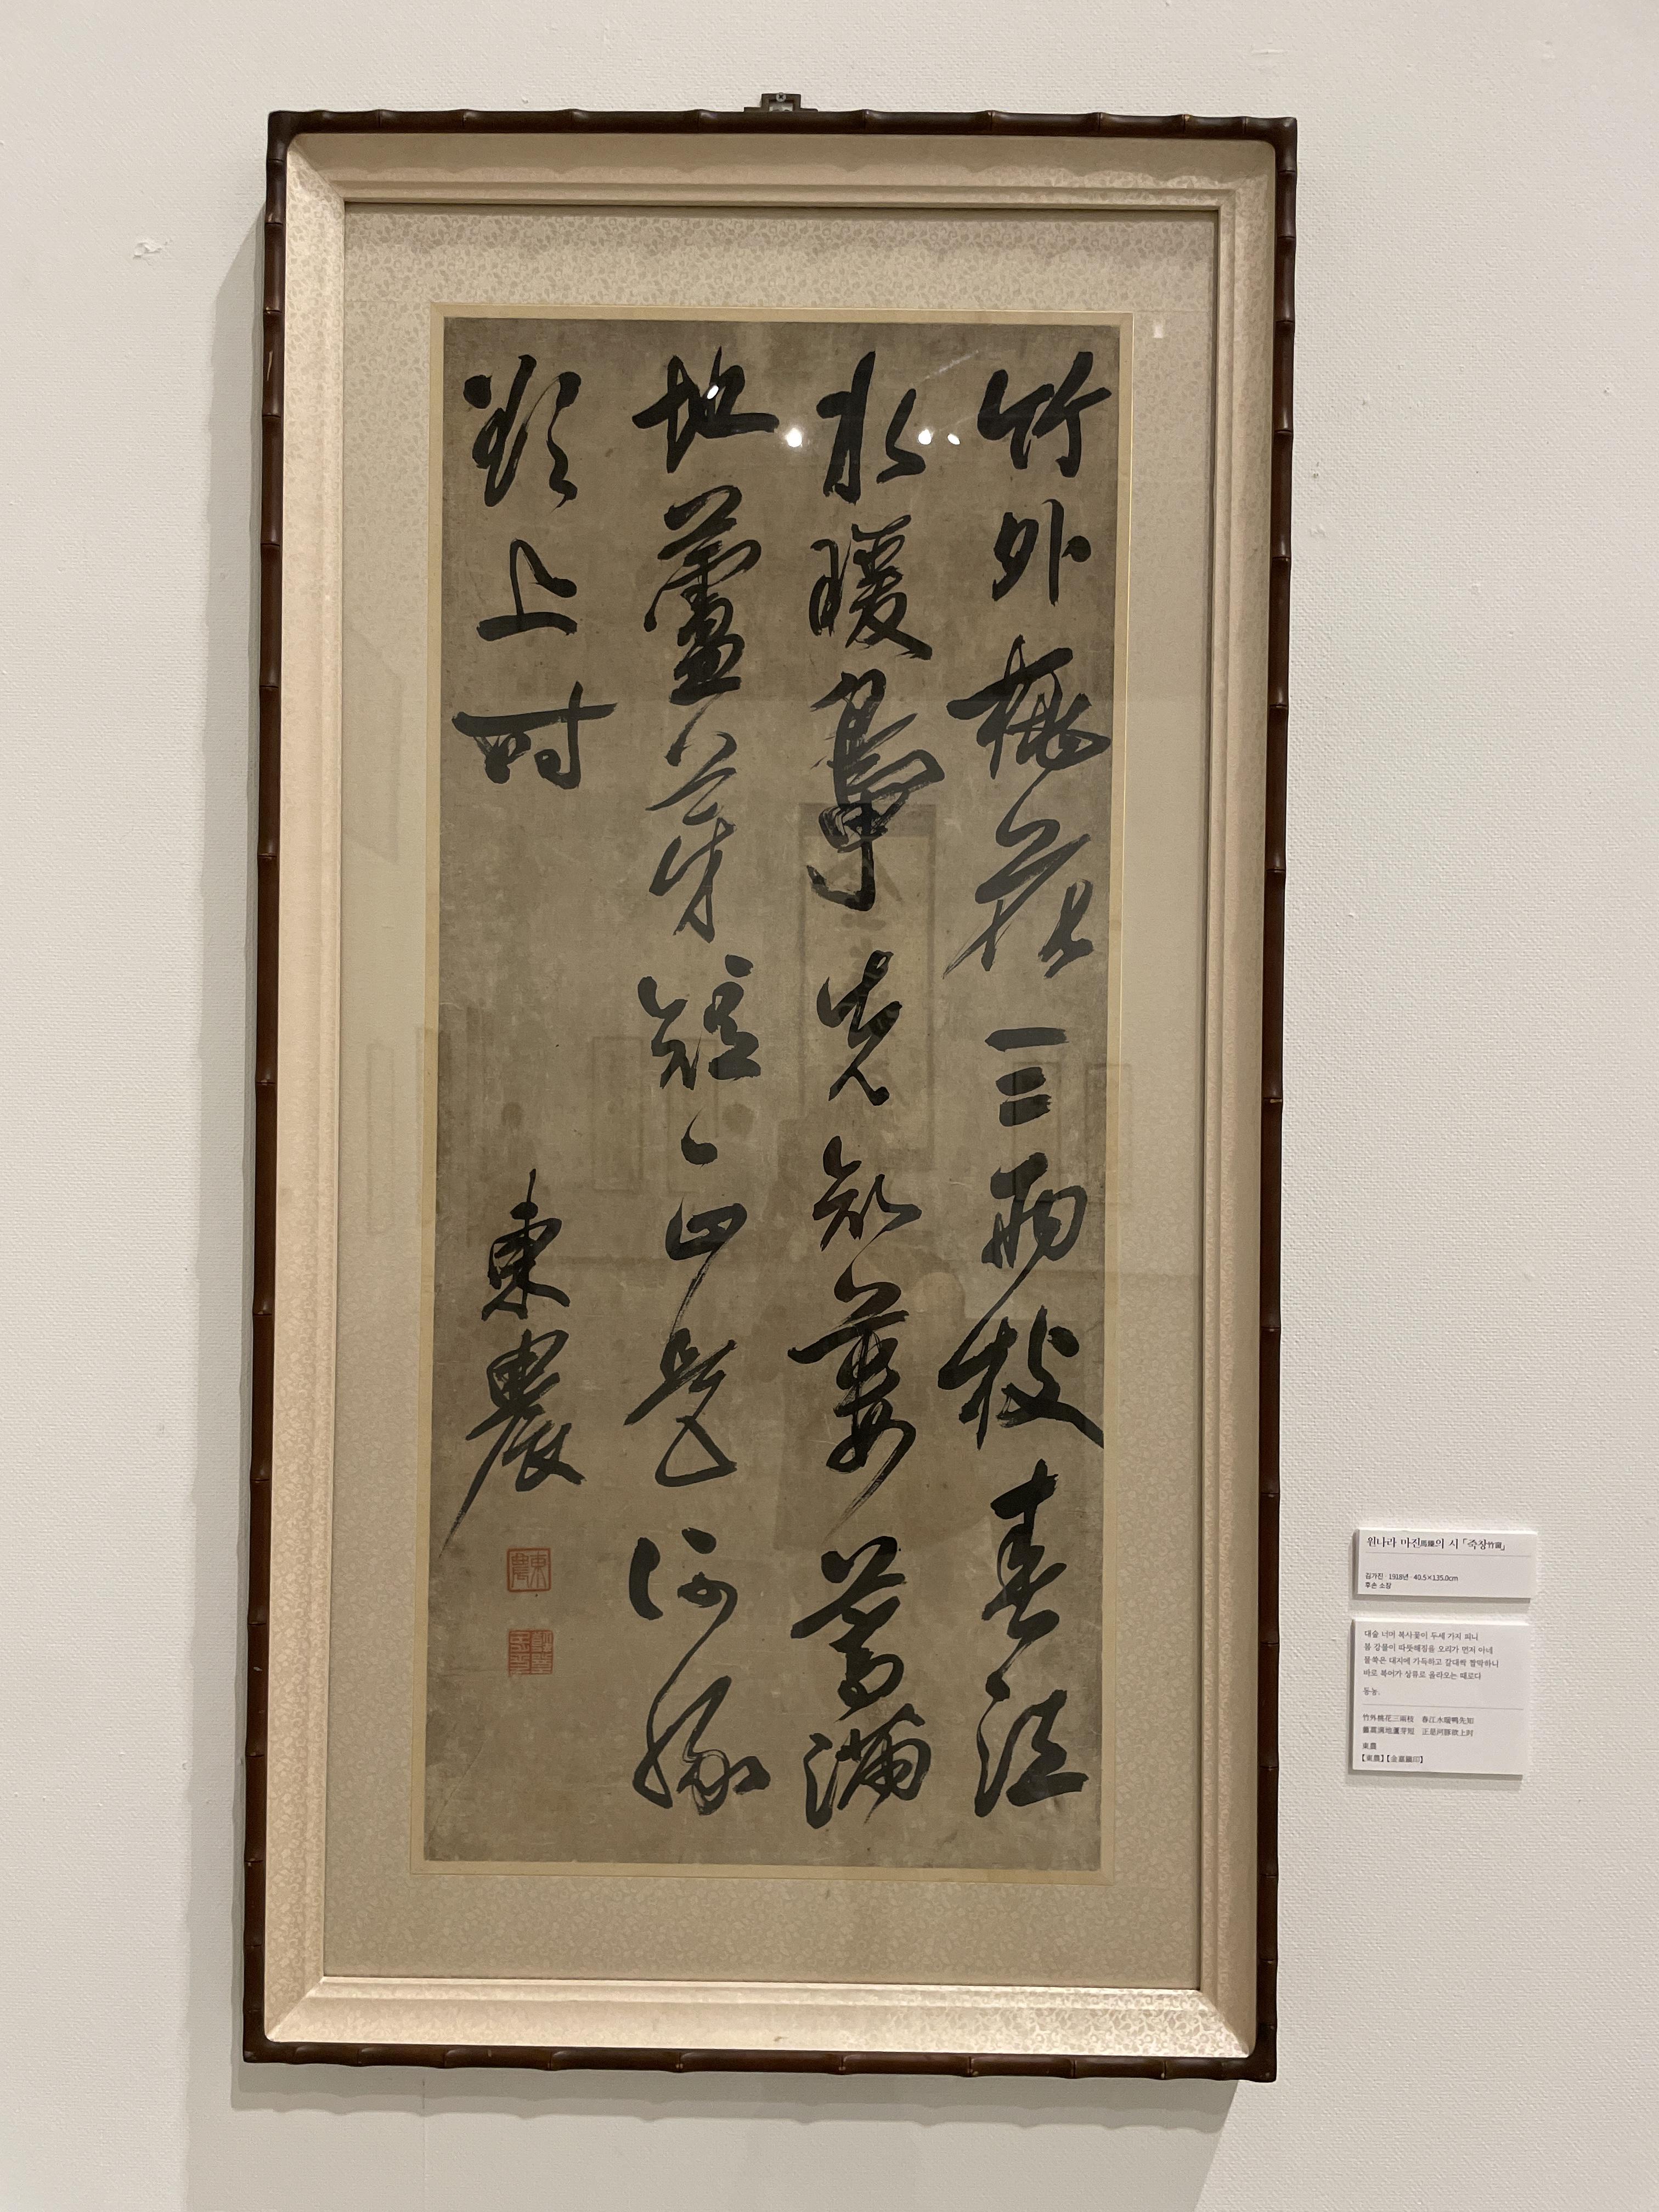 竹外桃花三兩枝春江
水暖鴨先知蔞蒿滿
地蘆芽短正是河豚
欲上时
東農
東農
金嘉鎭印
원나라 마진馬臻의 시 「죽창竹窗」
김가진 · 1918년 · 40.5×135.0cm
후손 소장
대숲 너머 복사꽃이 두세 가지 피니
봄 강물이 따뜻해짐을 오리가 먼저 아네
물쑥은 대지에 가득하고 갈대싹 짤막하니
바로 복어가 상류로 올라오는 때로다
동농.
竹外桃花三兩枝 春江水暖鴨先知
蔞蒿滿地蘆芽短 正是河豚欲上时
東農
【東農】【金嘉鎭印】